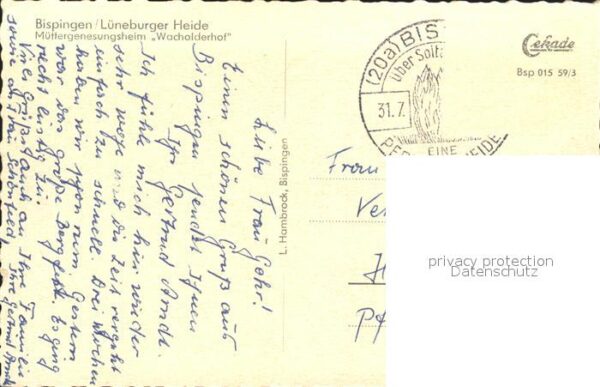 Bispingen/Lüneburger Heide
Müttergenesungsheim „Wacholderhof"
Cekade
Bsp 015 59/3
(20a) BIS
über Solt
31.7.
EINE
HEIDE
L. Hambrock, Bispingen
Liebe Frau Gohr!
Einen schönen Gruß aus
Bispingen sendet Ihnen
Ihre Gertrud Arndt.
Ich fühle mich hier wieder
sehr wohl und die Zeit vergeht
einfach zu schnell. Drei Wochen
haben wir schon rum. Gestern
war das große Bergfest. Es ging
recht lustig zu.
Viele Grüße auch an Ihre Familie
Ihre Gertrud Arndt
Frau
privacy protection
Datenschutz